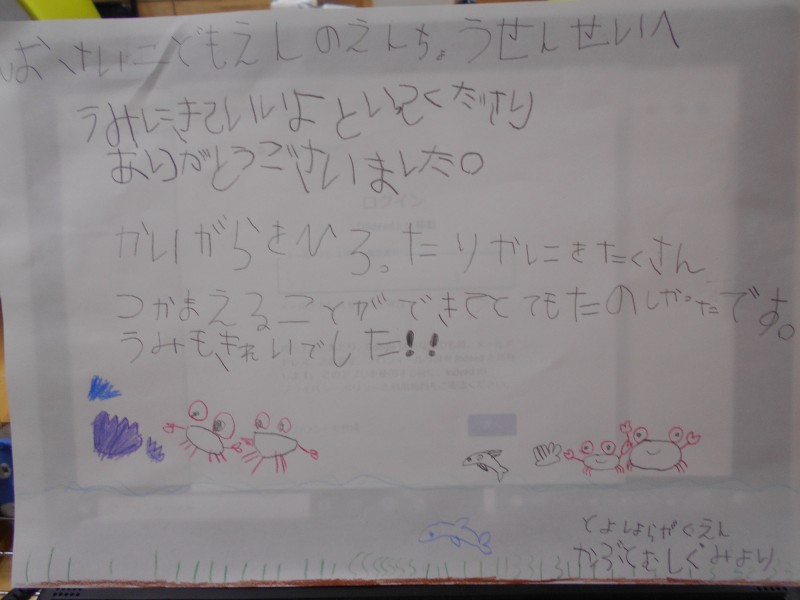 ばさいこどもえんのえんちょうせんせいへ
うみにきていいよといってくださり
ありがとうございました。
かいがらをひろったりかにをたくさん
つかまえることができてとてもたのしかったです。
うみもきれいでした!!
がくえん
かぶとむしぐみより
ログイン